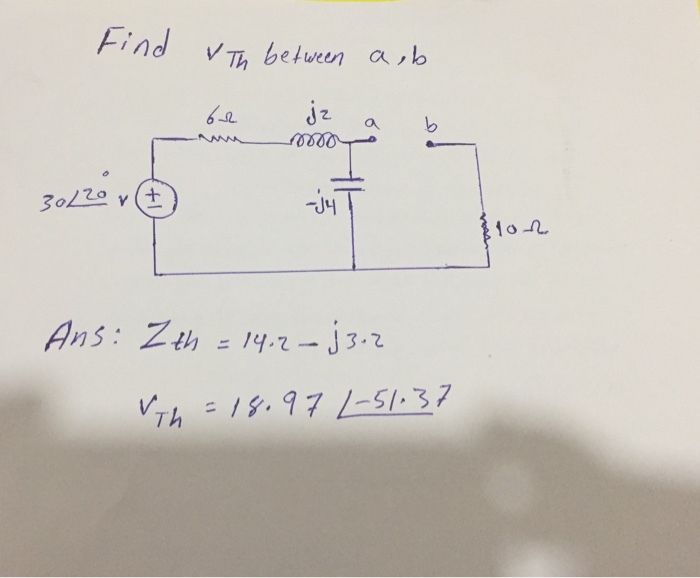 Find VTh between a, b
6Ω j2 a b
30∠20° v + - -j4 10Ω
Ans: Zth = 14.2 - j3.2
VTh = 18.97 ∠-51.37